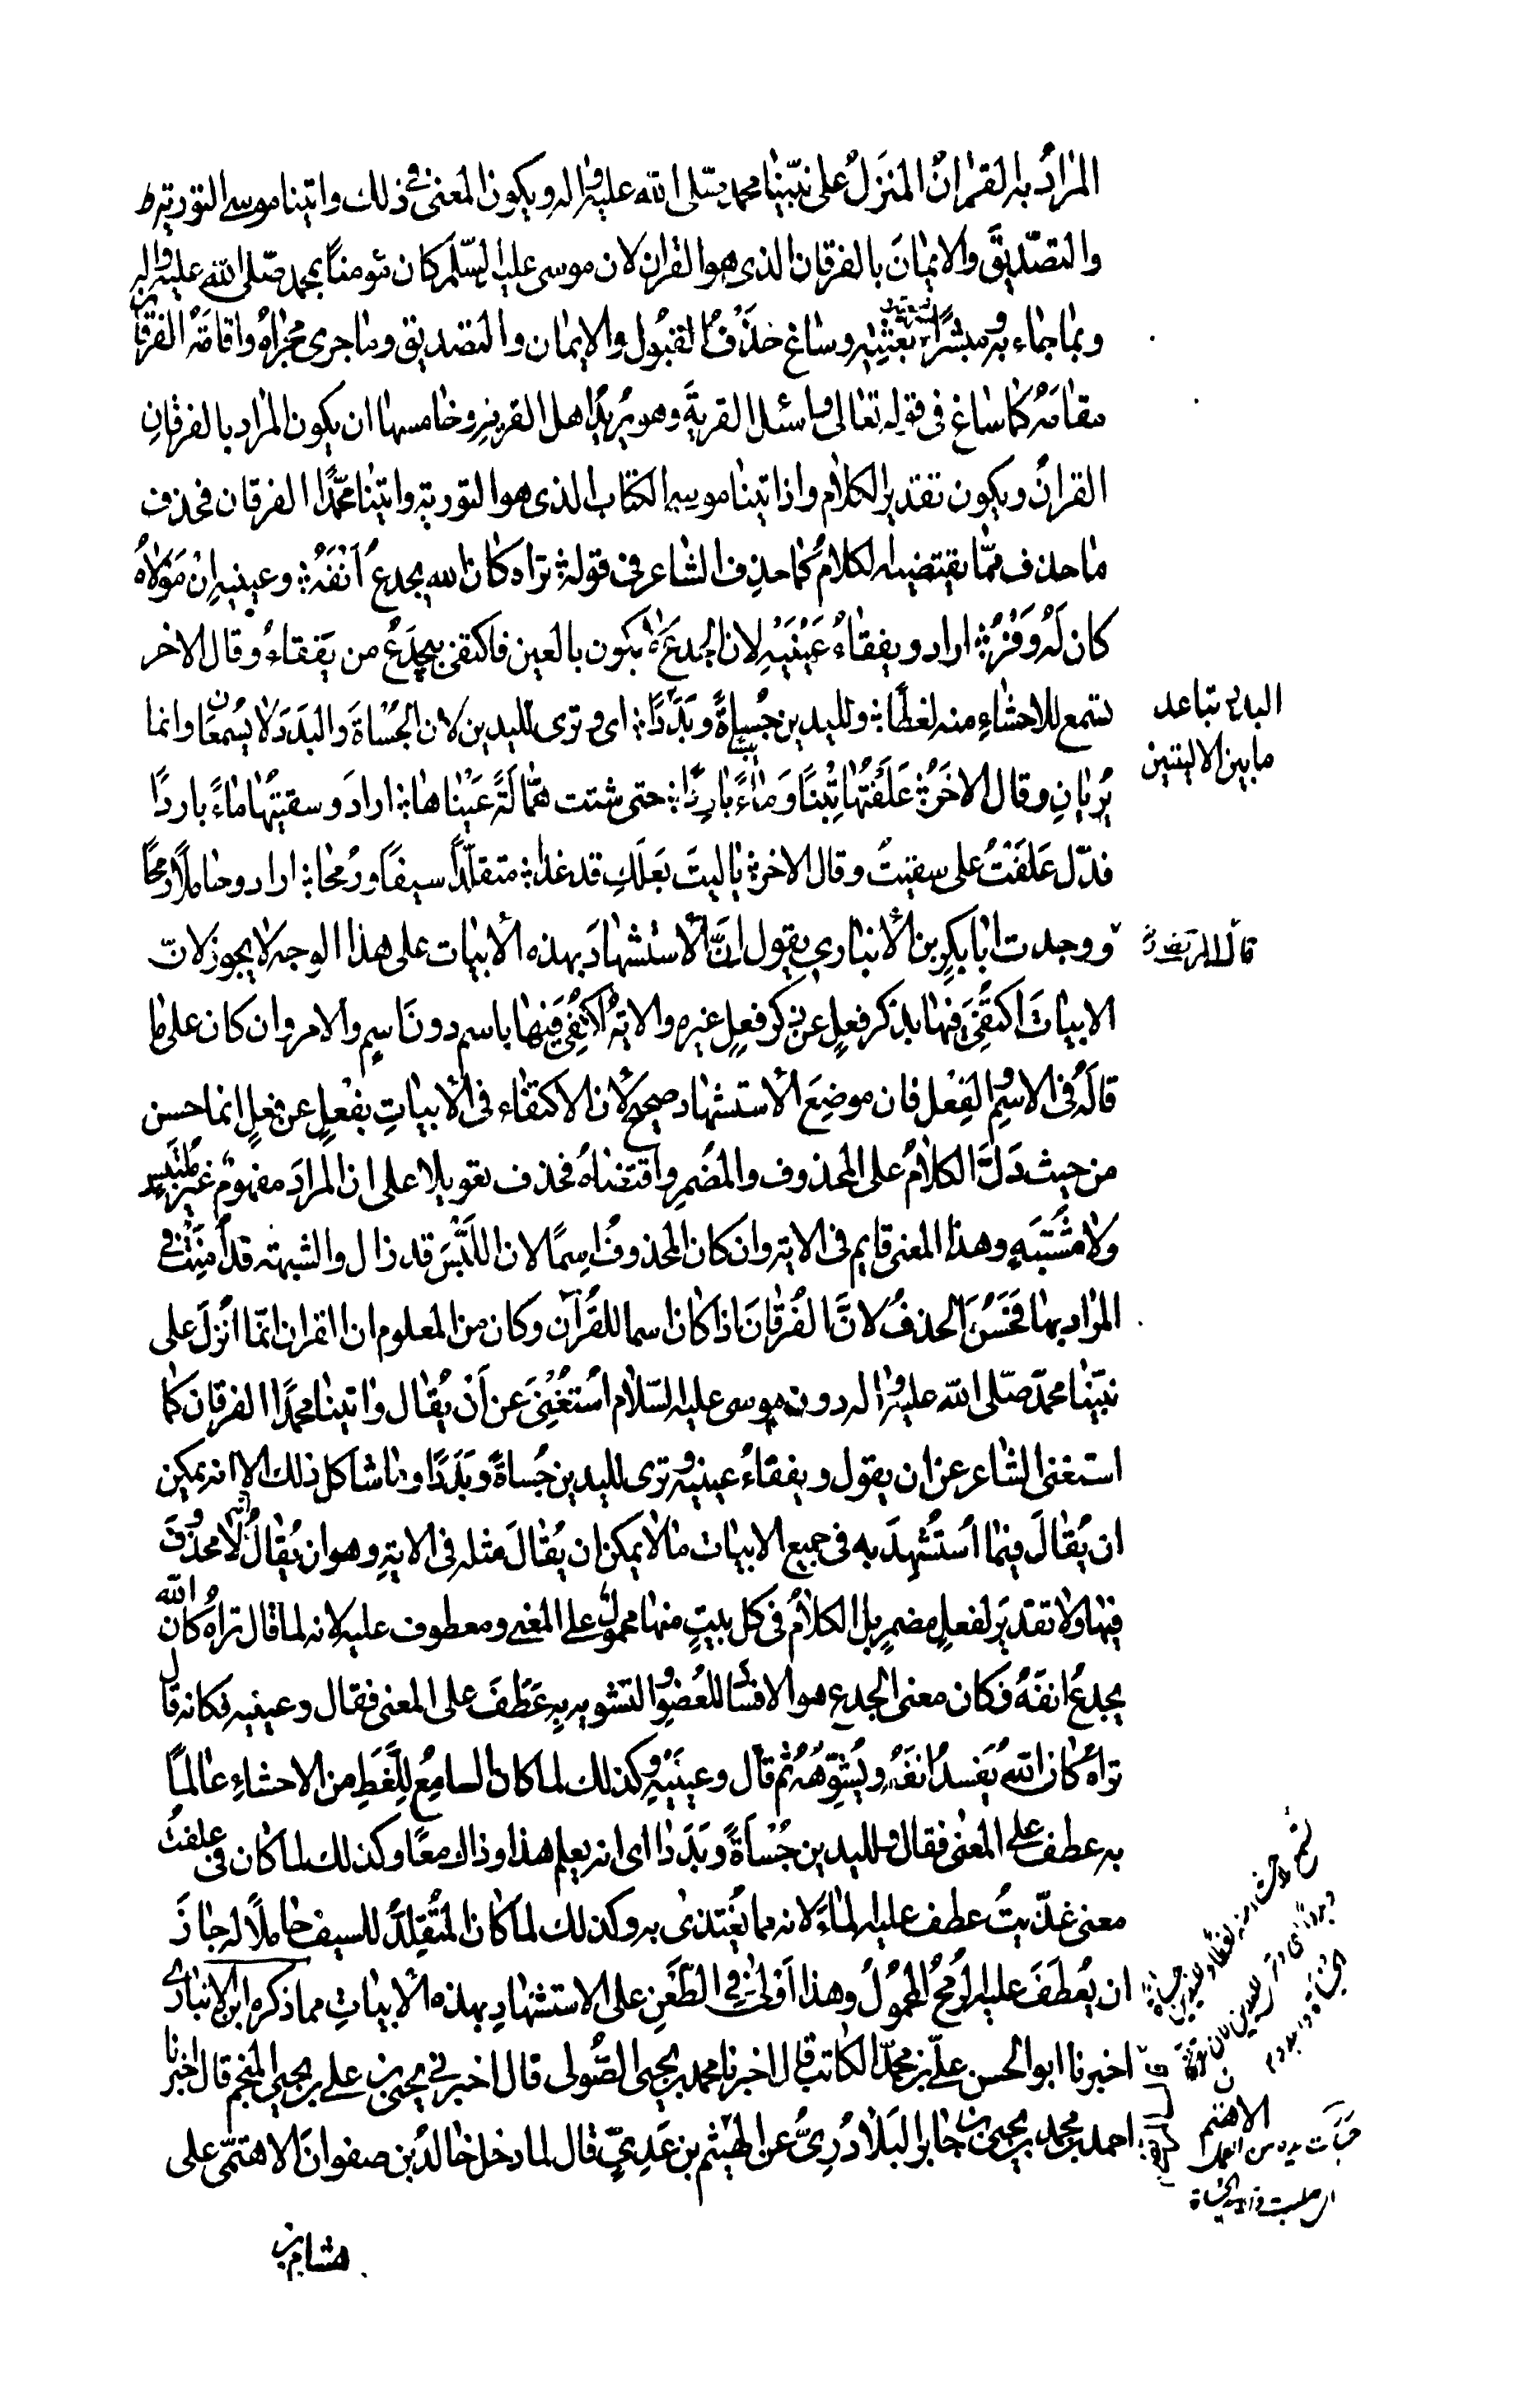 المرادُ بالقران المنزل على نبيّنا محمد صلى الله عليه واله ويكون المعنى فى ذلك واتينا موسى التوریة
والتصديقَ والايمانَ بالفرقان الذى هو القران لان موسى عليه السلم كان مؤمناً بمحمد صلى الله عليه واله
وبما جاء به ومبشراً ببعثته وساغ حذفُ القبول والايمان والتصديق وما جرى مجراهُ واقامَةُ الفرقان
مقامَهُ كما ساغ فى قوله تعالى واسئل القريةَ وهو يُريدُ اهل القرية وخامسها ان يكون المراد بالفرقانِ
القرانُ ويكون تقدير الكلام واذ اتينا موسى الكتاب الذى هو التورية واتينا محمّدًا الفرقان فحذف
ما حذف ممّا يقتضيه الكلامُ كما حذف الشاعر فى قوله تراه كان الله يجدعُ اَنْفَهُ وعينيهِ ان مَوْلاهُ
كان لَهُ وَفْرُ اراد ويفقاءُ عَيْنَيْهِ لان الجدعَ لا يكون بالعين فاكتفى بيجدَعُ من يَفقاءُ وقال الاخر
تسمع للاحشاءِ منه لغطًا ولليدين جُساةً وبَدَدًا اى وترى لليدين لان الجُسْاةَ والبَدَدَ لا يُسْمعَان وانما
يُريانِ وقال الاخَرُ عَلَفْتُها تِبْنًا وَماءً بارِدًا حتى شتت همّالَةً عَيْناها اراد وسقيتُها ماءً باردًا
فدّل عَلَفْتُ على سقيتُ وقال الاخر يا ليتَ بَعلَكِ قد غدا متقلّدًا سيفًا ورُمحًا اراد وحاملًا رمحًا
ووجدت ابا بكرِ بن الانباري يقول انَّ الاستشهادَ بهذه الابيات على هذا الوجه لا يجوز لانّ
الابياتَ اكتفِىَ فيها بذكر فعلٍ عن ذكر فعلٍ غيره والاية اكتُفِىَ فيها باسم دون اسمٍ والامر وان كان على ما
قالَهُ فى الاسْمِ والفِعْل فان موضِعَ الاستشهاد صحيحٌ لان الاكتفاء فى الابياتِ بفعْلٍ عن فعلٍ انما حسن
من حيث دَلَّ الكلامُ على المحذوف والمضمرِ واقتضاهُ فحذف تعويلا على ان المرادَ مفهومٌ غير ملتبس
ولا مشتَبَهٍ وهذا المعنى قايم فى الاية وان كان المحذوفُ اسمًا لان اللَّبْسَ قد زال والشبهة قد اُمِنَتْ فى
المراد بها فحَسُنَ الحذفُ لانَّ الفُرقانَ اذا كان اسما للقُرآن وكان من المعلوم ان القران انمّا اُنزلَ على
نبيّنا محمدّ صلى الله عليه واله دون موسى عليه السّلام اُستغْنِىَ عن اَنْ يُقال واتينا محمدًا الفرقان كما
استغنى الشاعر عن ان يقول ويفقاءُ عينيه وترى لليدين جُساةً وبَدَدًا وما شاكل ذلك الا انه يمكن
ان يُقالَ فيما اُستُشْهِدَ به فى جميع الابيات ما لا يمكن ان يُقالَ مثله فى الايةِ وهو ان يُقالُ انه لا محذوفَ
فيها ولا تقديرَ لفعلٍ مضمرٍ بل الكلامُ فى كل بيتٍ منها محمولٌ على المعنى ومعطوف عليه لانه لما قال تراهُ كان الله
يجدعُ انفَهُ فكان معنى الجدع هو الافسادُ للعُضوِ والتشويه به عَطَفَ على المعنى فقال وعينيه فكانه قال
تراهُ كان اللهَ يُفسدُ انفَهُ ويُشوِّههُ ثم قال وعينَيْهِ وكذلك لما كان السامِعُ لِلَّغَطِ من الاحشاءِ عالماً
به عطف على المعنى فقال ولليدين جُسْاَةً وبَدَدا اى انه يعلم هذا وذاك معًا وكذلك لما كان فى علفتُ
معنى غذّيتُ عطف عليه الماءَ لانه مما يُغتذى به وكذلك لما كان المُتقِلّدُ للسيف حاملًا له جازَ
ان يُعطَفَ عليه الرُمحُ المحمُولُ وهذا اَولى فى الطَعْنِ على الاستشهادِ بهذه الابياتِ مما ذكره ابن الانبارى
اخبرنا ابو الحسن علىّ بن محمدّ الكاتب قال اخبرنا محمد بن يحيى الصُولى قال اخبرنى يحيى بن على بن يحيى المنجم قال اخبرنا
احمد بن محمد بن يحيى بن جابر البَلاذُرِىُّ عن الهَيْثم بن عَدِيٍّ قال لما دخل خالدُ بن صفوانَ الاهتمّى على
هشام بن
البدد تباعد
ما بين الاليتين
قال المرتضى
الاهتم